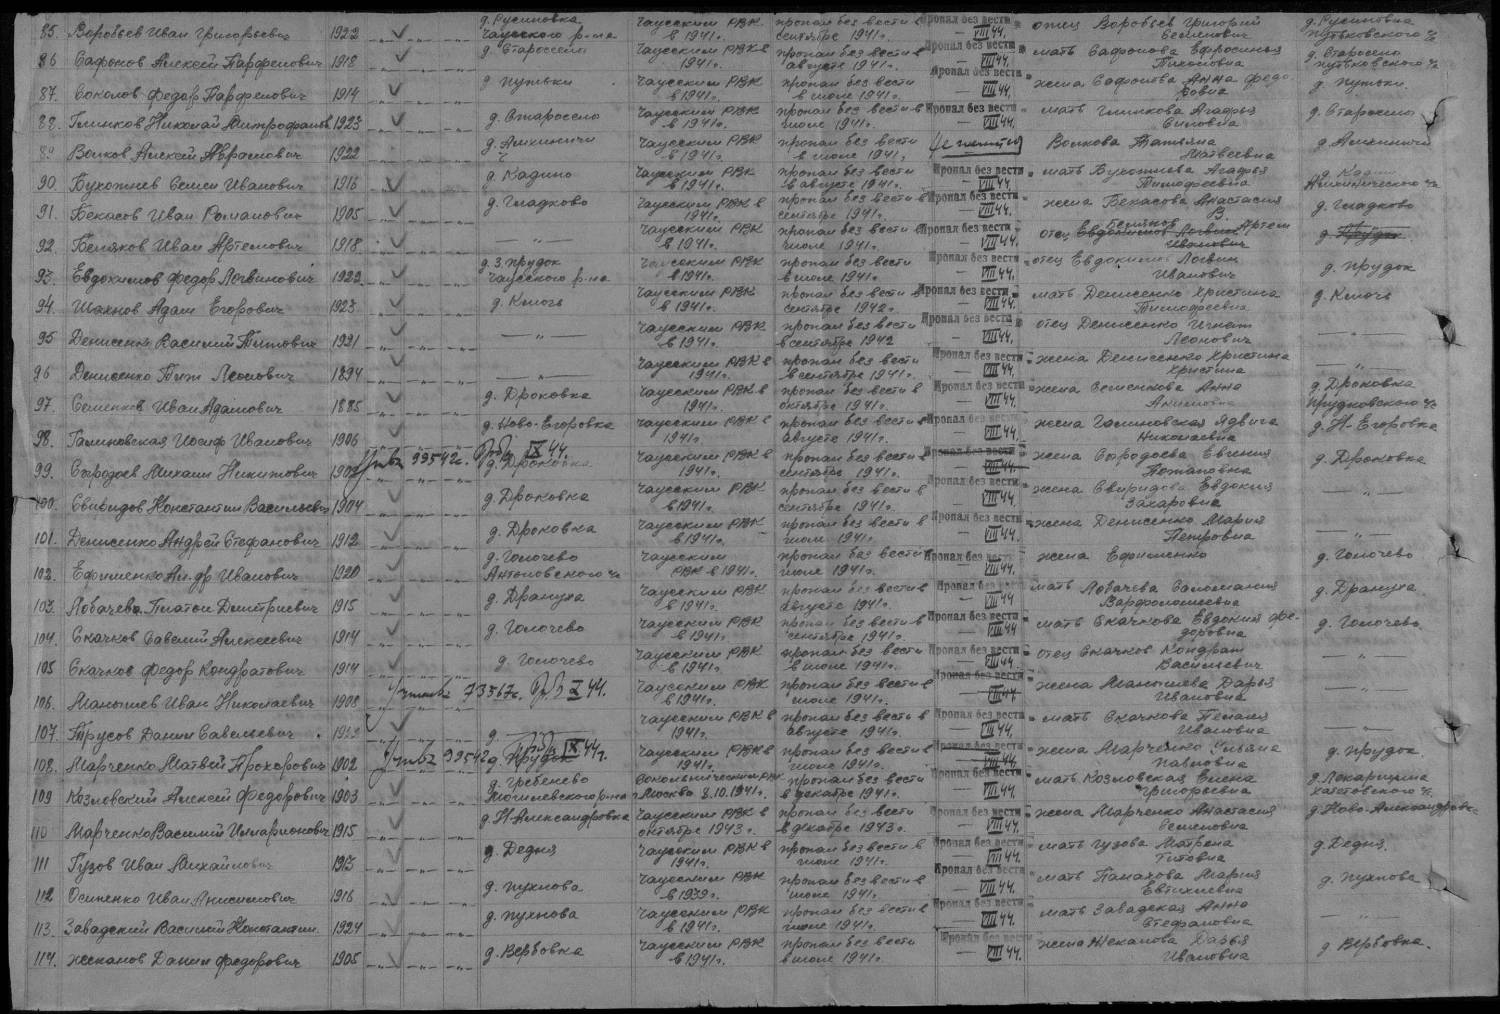 85. Воробьев Иван Григорьевич 1922 д. Русиновка Чаусского р-на Чаусским РВК в 1941г. пропал без вести в сентябре 1941г. Пропал без вести VIII 44. отец Воробьев Григорий Семенович д. Русиновка Путьковского
86 Сафонов Алексей Парфенович 1918 д. Старосело Чаусским РВК в 1941г. пропал без вести в августе 1941г. Пропал без вести VIII 44. мать Сафонова Ефросинья Тихоновна д. Старосело Путьковского
87. Соколов Федор Парфенович 1914 д. Путьки Чаусским РВК в 1941г. пропал без вести в июле 1941г. Пропал без вести VIII 44. жена Анна Федо-ровна д. Путьки.
88. Глинков Николай Митрофанов. 1923 д. Старосело Чаусским РВК в 1941г. пропал без вести в июле 1941г. Пропал без вести VIII 44. мать Глинкова Агафья д. Старосело
89 Волков Алексей Абрамович 1922 Чаусским РВК в 1941г. пропал без вести в июле 1941г. Волкова Татьяна Матвеевна
90. Семен Иванович 1916 д. Кадино Чаусским РВК в 1941г. пропал без вести в августе 1941г. Пропал без вести VIII 44. мать Агафья Тимофеевна
91. Бекасов Иван Романович 1905 д. Гладково Чаусским РВК в 1941г. пропал без вести в сентябре 1941г. Пропал без вести VIII 44. жена Бекасова Анастасия В. д. Гладково
92. Беляков Иван Артемович 1918 — " — Чаусским РВК в 1941г. пропал без вести в июле 1941г. Пропал без вести VIII 44. отец Беляков Артем Иванович д. Прудок
93. Евдокимов Федор Логвинович 1922 д. З. Прудок Чаусского р-на Чаусским РВК в 1941г. пропал без вести в июле 1941г. Пропал без вести VIII 44. отец Евдокимов Логвин Иванович д. Прудок
94. Шахнов Адам Егорович 1923 д. Ключь Чаусским РВК в 1941г. пропал без вести в сентябре 1942г. Пропал без вести VIII 44. мать Денисенко Христина Тимофеевна д. Ключь
95 Денисенко Василий 1921 — " — Чаусским РВК в 1941г. пропал без вести в сентябре 1942 Пропал без вести VIII 44. отец Денисенко Игнат Леонович — " —
96 Денисенко Леонович 1894 — " — Чаусским РВК в 1941г. пропал без вести в сентябре 1941г. Пропал без вести VIII 44. жена Денисенко Христина Христина — " —
97. Семенков Иван Адамович 1885 д. Дроковка Чаусским РВК в 1941г. пропал без вести в октябре 1941г. Пропал без вести VIII 44. жена Семенкова Анна д. Дроковка Прудковского
98. Галиновская Иосиф Иванович 1906 д. Ново-Егоровка Чаусским РВК в 1941г. пропал без вести в августе 1941г. Пропал без вести VIII 44. жена Галиновская Ядвига Николаевна д. Н-Егоровка
99. Михаил Никитович 99542с. IX 44. д. Дроковка Чаусским РВК в 1941г. пропал без вести в сентябре 1941г. Пропал без вести VIII 44. жена Евгения Потаповна д. Дроковка
100. Константин Васильевич 1904 д. Дроковка Чаусским РВК в 1941г. пропал без вести в сентябре 1941г. Пропал без вести VIII 44. жена Свиридова Евдокия Захаровна — " —
101. Денисенко Андрей Стефанович 1912 д. Дроковка Чаусским РВК в 1941г. пропал без вести в июле 1941г. Пропал без вести VIII 44. жена Денисенко Мария Петровна — " —
102. Ефименко Ал-др Иванович 1920 д. Голочево Антоновского Чаусским РВК в 1941г. пропал без вести в июле 1941г. Пропал без вести VIII 44. жена Ефименко д. Голочево
103. Лобачева Платон Дмитриевич 1915 д. Драпуха Чаусским РВК в 1941г. пропал без вести в августе 1941г. Пропал без вести VIII 44 мать Лобачева Соломания Варфоломеевна д. Драпуха.
104. Скачков Савелий Алексеевич 1914 д. Голочево Чаусским РВК в 1941г. пропал без вести в сентябре 1941г. Пропал без вести VIII 44 мать Скачкова Евдокия Фе-доровна д. Голочево.
105 Скачков Федор Кондратович 1914 д. Голочево Чаусским РВК в 1941г. пропал без вести в июле 1941г. Пропал без вести VIII 44. отец Скачков Кондрат Васильевич — " —
106. Малышев Иван Николаевич 1908 73567с. X 44. Чаусским РВК в 1941г. пропал без вести в июле 1941г. Пропал без вести VIII 44 жена Малышева Дарья Ивановна — " —
107. Трусов Данил Савельевич д. Чаусским РВК в 1941г. пропал без вести в августе 1941г. Пропал без вести VIII 44. мать Скачкова Пелагия Ивановна — " —
108. Марченко Матвей Прохорович 1902 99542с. IX 44г. д. Прудок Чаусским РВК в 1941г. пропал без вести в июле 1941г. Пропал без вести VIII 44. жена Марченко Ульяна Павловна д. Прудок
109 Козловский Алексей Федорович 1903 д. Гребенево Могилевского р-на Сокольническим РВК г. Москва 8.10.1941г. пропал без вести в декабре 1941г. Пропал без вести VIII 44. мать Козловская Елена Григорьевна
110 Марченко Василий Илларионович 1915 д. Н-Александровка Чаусским РВК в октябре 1943г. пропал без вести в декабре 1943г. Пропал без вести VIII 44. жена Марченко Анастасия Семеновна д. Ново-Александровка
111 Гузов Иван Михайлович 1913 д. Дедня Чаусским РВК в 1941г. пропал без вести в июле 1941г. Пропал без вести VIII 44. мать Гузова Матрена Титовна д. Дедня.
112 Осипенко Иван Анисимович 1916 д. Пухнова Чаусским РВК в 1939г. пропал без вести в июле 1941г. Пропал без вести VIII 44. мать Мария Евтихиевна д. Пухнова
113. Завадский Василий Константин. 1924 д. Пухнова Чаусским РВК в 1941г. пропал без вести в июле 1941г. Пропал без вести VIII 44. мать Завадская Анна Стефановна — " —
114. Жеканов Данил Федорович 1905 д. Вербовка Чаусским РВК в 1941г. пропал без вести в июле 1941г. Пропал без вести VIII 44. жена Жеканова Дарья Ивановна д. Вербовка.